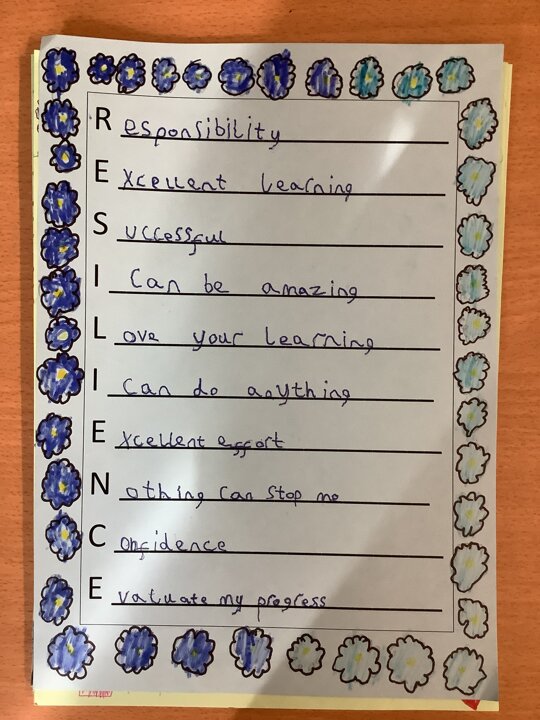 Responsibility
Excellent learning
Successful
I can be amazing
Love your learning
I can do anything
Excellent effort
Nothing can stop me
Confidence
Evaluate my progress